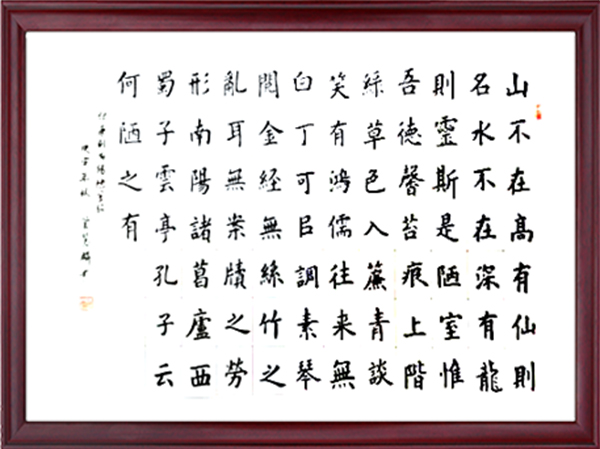 山不在髙有仙則
名水不在深有龍
則靈斯是陋室惟
吾德馨苔痕上階
綠草色入簾青談
笑有鴻儒往来無
白丁可㠯調素琴
閱金經無絲竹之
亂耳無案牘之勞
形南陽諸葛廬西
蜀子雲亭孔子云
何陋之有